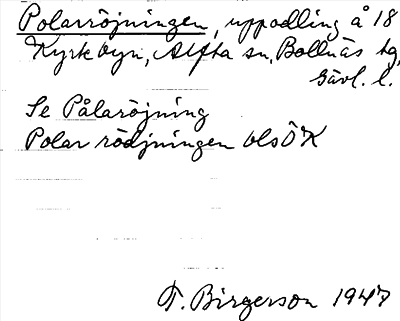 Polarröjningen, uppodling å 18
Kyrkbyn, Alfta sn, Bollnäs tg,
Gävl. l.
Se Pålaröjning
Polar rödjningen blsÖK
T. Birgerson 1947